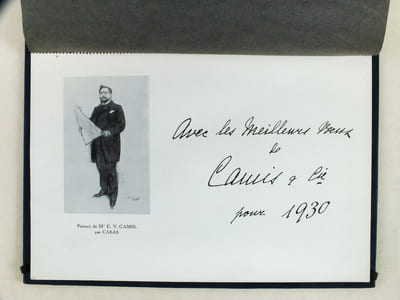 Avec les Meilleurs Vœux
de
Camis & Cie
pour 1930
Portrait de Mr E. V. CAMIS
par CASAS